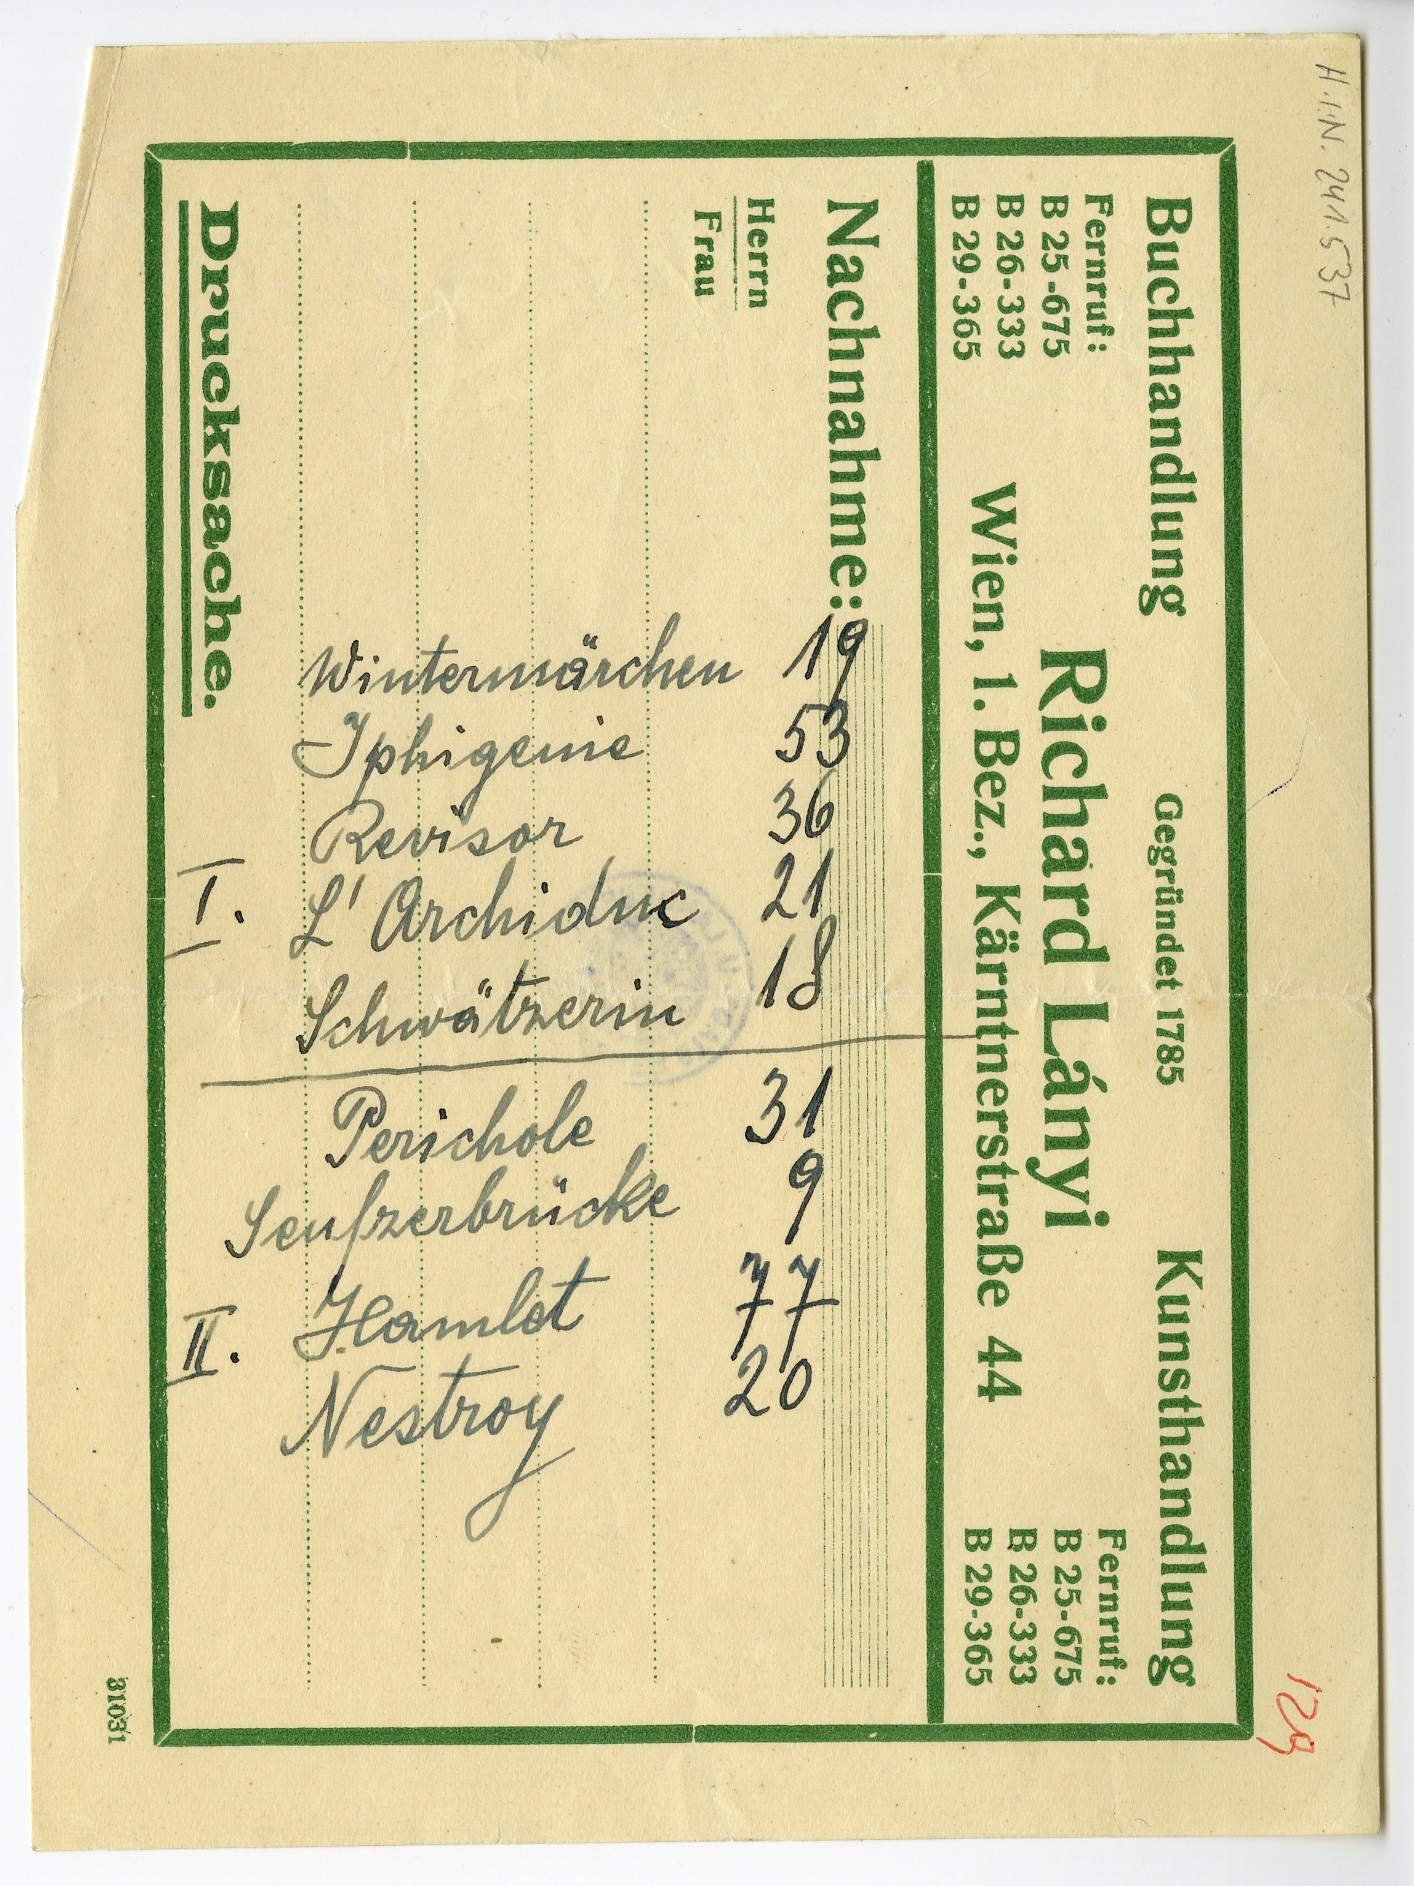 H.I.N. 241.537
Buchhandlung Gegründet 1785 Kunsthandlung
Richard Lányi
Wien, 1. Bez., Kärntnerstraße 44
Fernruf:
B 25-675
B 26-333
B 29-365
Fernruf:
B 25-675
B 26-333
B 29-365
Nachnahme:
Herrn
Frau
Drucksache.
31031
Wintermärchen 19
Iphigenie 53
Revisor 36
I. L'Archiduc 21
Schwätzerin 18
Perichole 31
Seufzerbrücke 9
II. Hamlet 77
Nestroy 20